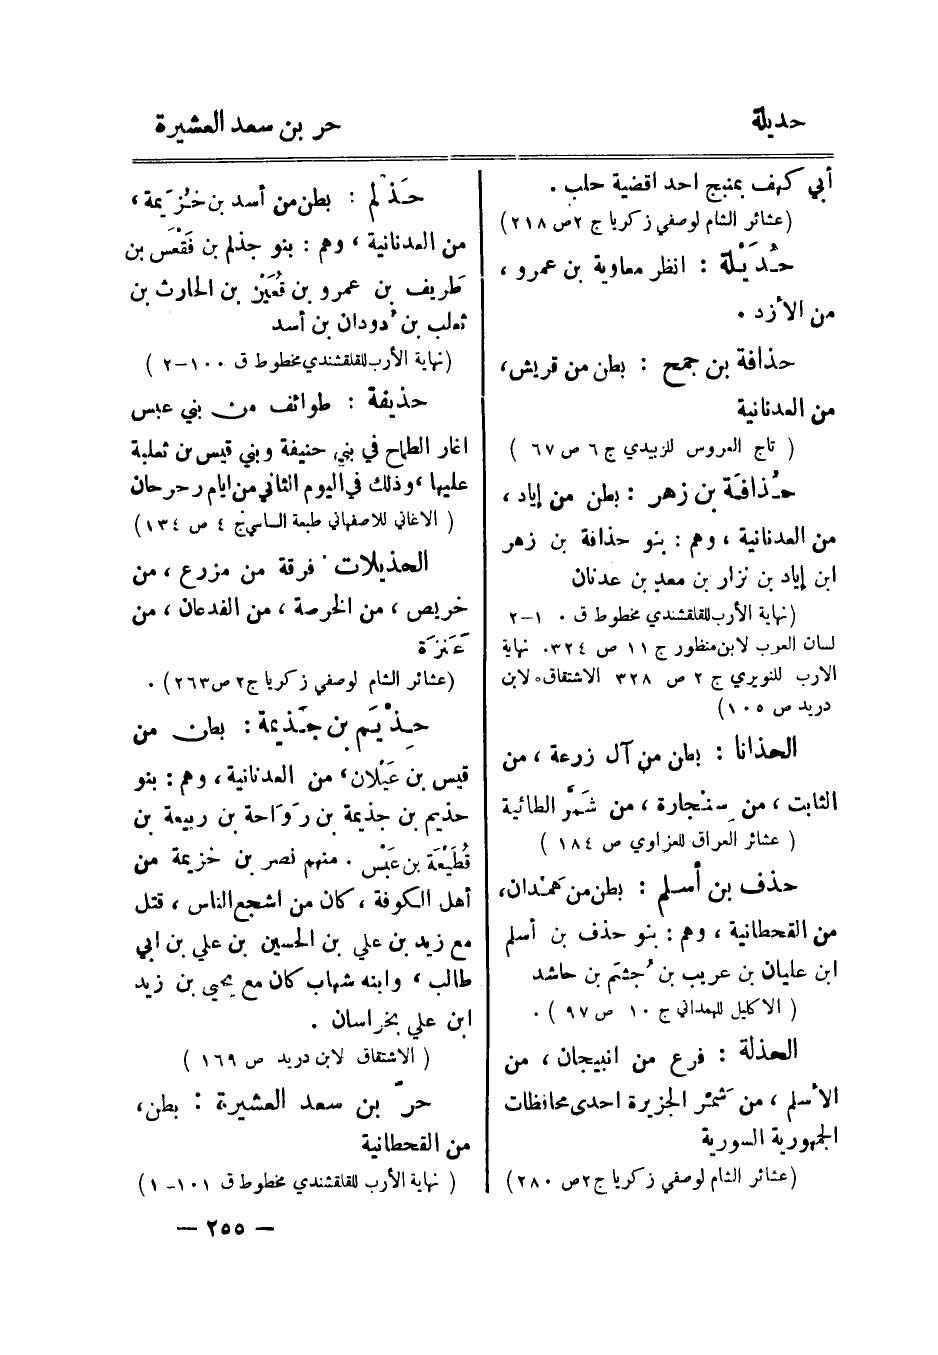 حديلة
حر بن سعد العشيرة
أبي كهف بمنبج احد اقضية حلب .
(عشائر الشام لوصفي زكريا ج ٢ ص ٢١٨)
حُدَيْلَة : انظر معاوية بن عمرو ،
من الأزد .
حذافة بن جمح : بطن من قريش،
من العدنانية
( تاج العروس للزبيدي ج ٦ ص ٦٧ )
حُذافة بن زهر : بطن من إياد ،
من العدنانية ، وهم : بنو حذافة بن زهر
ابن إياد بن نزار بن معد بن عدنان
(نهاية الأرب للقلقشندي مخطوط ق ١٠٠–٢
لسان العرب لابن منظور ج ١١ ص ٣٢٤. نهاية
الارب للنويري ج ٢ ص ٣٢٨ الاشتقاق لابن
دريد ص ١٠٥)
الحذانا : بطن من آل زرعة ، من
الثابت ، من سنجارة ، من شَمَّر الطائية
( عشائر العراق للعزاوي ص ١٨٤ )
حذف بن أسلم : بطن من هَمْدان،
من القحطانية ، وهم : بنو حذف بن أسلم
ابن عليان بن عريب بن جُشَم بن حاشد
( الاكليل للهمداني ج ١٠ ص ٩٧ ) .
الحذلة : فرع من انبيجان ، من
الأسلم ، من شَمَّر الجزيرة احدى محافظات
الجمهورية السورية
(عشائر الشام لوصفي زكريا ج ٢ ص ٢٨٠)
حَذْلم : بطن من أسد بن خُزَيمة ،
من العدنانية ، وهم : بنو جذلم بن فَقْعَس بن
طَريف بن عمرو بن قُعَيْن بن الحارث بن
ثعلب بن دُودان بن أسد
(نهاية الأرب للقلقشندي مخطوط ق ١٠٠–٢ )
حذيفة : طوائف من بني عبس
اغار الطماح في بني حنيفة وبني قيس بن ثعلبة
عليها ، وذلك في اليوم الثاني من ايام رحرحان
( الاغاني للاصفهاني طبعة الساسي ج ٤ ص ١٣٤)
الحذيلات : فرقة من مزرع ، من
خريص ، من الخرصة ، من الفدعان ، من
عَنَزَة
(عشائر الشام لوصفي زكريا ج٢ ص٢٦٣) .
حِذْيَم بن جَذيمة : بطن من
قيس بن عَيْلان ، من العدنانية ، وهم : بنو
حذيم بن جذيمة بن رَوَاحة بن ربيعة بن
قُطَيْعَة بن عَبْس . منهم نصر بن خزيمة من
أهل الكوفة ، كان من اشجع الناس ، قتل
مع زيد بن علي بن الحسين بن علي بن ابي
طالب ، وابنه شهاب كان مع يحيى بن زيد
ابن علي بخراسان .
( الاشتقاق لابن دريد ص ١٦٩ )
حرّ بن سعد العشيرة : بطن،
من القحطانية
( نهاية الأرب للقلقشندي مخطوط ق ١٠١–١)
— ٢٥٥ —